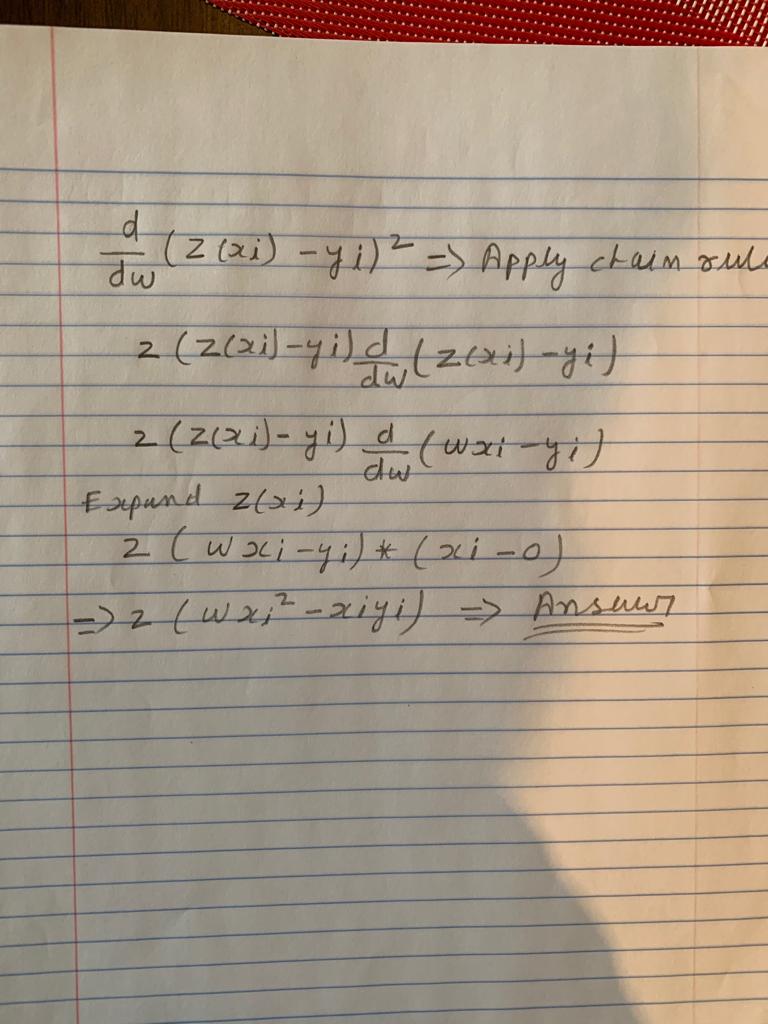 d/dw (z(xi) - yi)² => Apply chain rule
2 (z(xi) - yi) d/dw (z(xi) - yi)
2 (z(xi) - yi) d/dw (wxi - yi)
Expand z(xi)
2 (wxi - yi) * (xi - 0)
=> 2 (wxi² - xiyi) => Answer